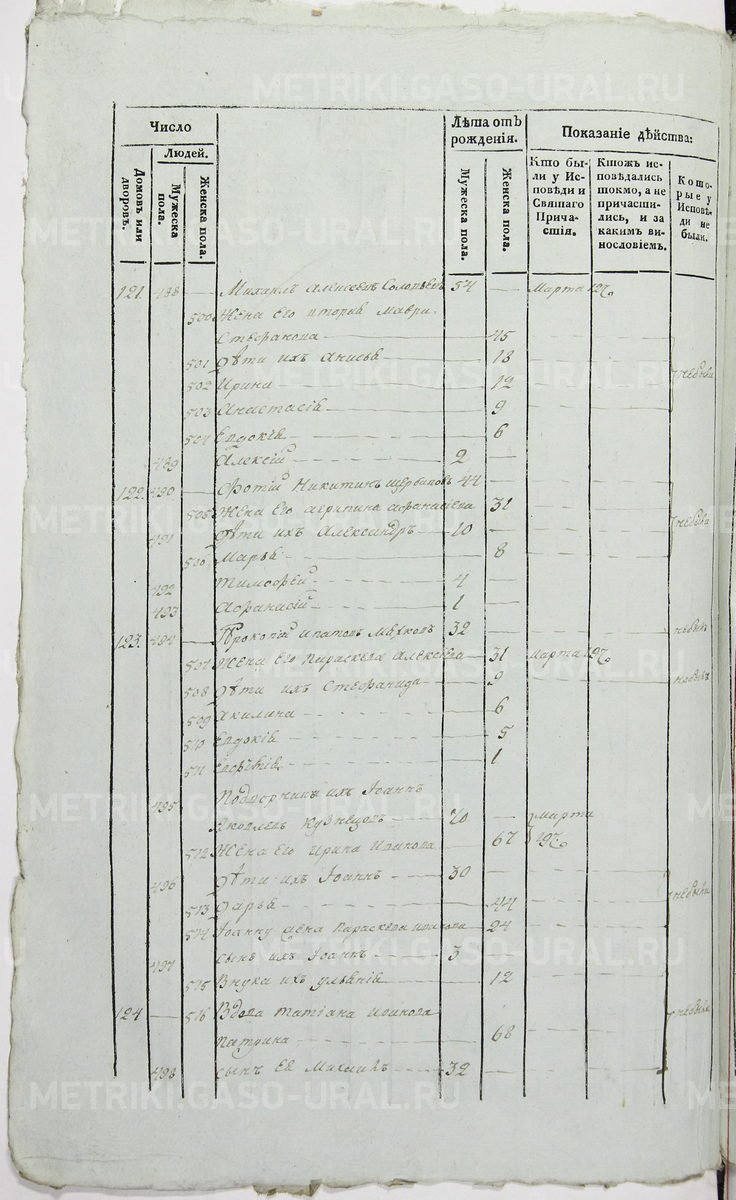 METRIKI.GASO-URAL.RU
Число
Людей.
Домовъ или дворовъ.
Мужеска пола.
Женска пола.
Лѣта отъ рожденія.
Мужеска пола.
Женска пола.
Показаніе дѣйства:
Кто были у Исповѣди и Святаго Причастія.
Ктожъ исповѣдались токмо, а не причастились, и за какимъ винословіемъ.
Которые у Исповѣди не были.
121. 488 Михаилъ Алексѣевъ 54 Марта 12го
500 Жена Его вторая Мавра
Стефанова 45
501 Дѣти ихъ Анисья 18 небыли
502 Ирина 12
503 Анастасія 9
504 Евдокія 6
489 Алексій 2
122. 490 Фотій Никитинъ Щербаковъ 44
505 Жена Его Агрипина Афанасіева 31 небыли
491 Дѣти ихъ Александръ 10
506 Марья 8
492 Тимофей 4
493 Афанасій 1
123. 494 Прокопій Ипатовъ 32 небылъ
507 Жена Его Параскева Алексѣева 31 Марта 19го
508 Дѣти ихъ Стефанида 9
509 Акилина 6
510 Евдокія 5
511 1
495 Подворникъ ихъ Іоаннъ
Яковлевъ Кузнецовъ 70 Марта
512 Жена Его Ирина Иванова 67 19го
496 Дѣти ихъ Іоаннъ 30 небыли
513 Дарья 44
514 Іоанну жена Параскева Иванова 24
497 Сынъ ихъ Іоаннъ 3
515 Внука ихъ Ульянія 12
124 516 Вдова Татіана Иванова небыли
Патрина 68
498 Сынъ Ея Михаилъ 32